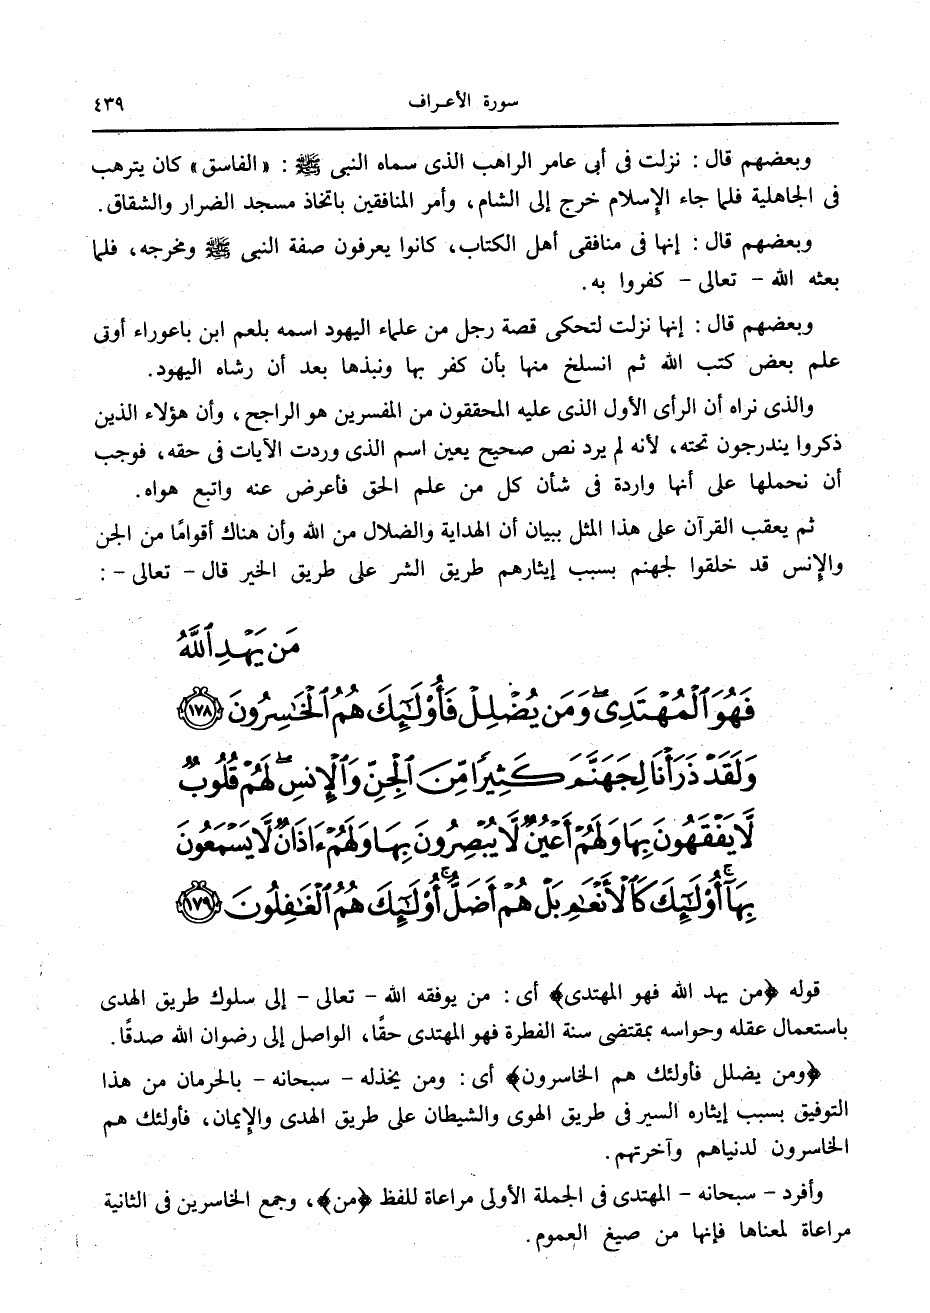 سورة الأعراف ٤٣٩
وبعضهم قال : نزلت فى أبى عامر الراهب الذى سماه النبى ﷺ : « الفاسق » كان يترهب
فى الجاهلية فلما جاء الإسلام خرج إلى الشام ، وأمر المنافقين باتخاذ مسجد الضرار والشقاق .
وبعضهم قال : إنها فى منافقى أهل الكتاب ، كانوا يعرفون صفة النبى ﷺ ومخرجه ، فلما
بعثه الله - تعالى - كفروا به .
وبعضهم قال : إنها نزلت لتحكى قصة رجل من علماء اليهود اسمه بلعم ابن باعوراء أوتى
علم بعض كتب الله ثم انسلخ منها بأن كفر بها ونبذها بعد أن رشاه اليهود .
والذى نراه أن الرأى الأول الذى عليه المحققون من المفسرين هو الراجح ، وأن هؤلاء الذين
ذكروا يندرجون تحته ، لأنه لم يرد نص صحيح يعين اسم الذى وردت الآيات فى حقه ، فوجب
أن نحملها على أنها واردة فى شأن كل من علم الحق فأعرض عنه واتبع هواه .
ثم يعقب القرآن على هذا المثل ببيان أن الهداية والضلال من الله وأن هناك أقوامًا من الجن
والإنس قد خلقوا لجهنم بسبب إيثارهم طريق الشر على طريق الخير قال - تعالى - :
مَن يَهْدِ ٱللَّهُ
فَهُوَ ٱلْمُهْتَدِى ۖ وَمَن يُضْلِلْ فَأُو۟لَـٰٓئِكَ هُمُ ٱلْخَـٰسِرُونَ ١٧٨
وَلَقَدْ ذَرَأْنَا لِجَهَنَّمَ كَثِيرًا مِّنَ ٱلْجِنِّ وَٱلْإِنسِ ۖ لَهُمْ قُلُوبٌ
لَّا يَفْقَهُونَ بِهَا وَلَهُمْ أَعْيُنٌ لَّا يُبْصِرُونَ بِهَا وَلَهُمْ ءَاذَانٌ لَّا يَسْمَعُونَ
بِهَآ ۚ أُو۟لَـٰٓئِكَ كَٱلْأَنْعَـٰمِ بَلْ هُمْ أَضَلُّ ۚ أُو۟لَـٰٓئِكَ هُمُ ٱلْغَـٰفِلُونَ ١٧٩
قوله ﴿من يهد الله فهو المهتدى﴾ أى : من يوفقه الله - تعالى - إلى سلوك طريق الهدى
باستعمال عقله وحواسه بمقتضى سنة الفطرة فهو المهتدى حقًا ، الواصل إلى رضوان الله صدقًا .
﴿ومن يضلل فأولئك هم الخاسرون﴾ أى : ومن يخذله - سبحانه - بالحرمان من هذا
التوفيق بسبب إيثاره السير فى طريق الهوى والشيطان على طريق الهدى والإيمان ، فأولئك هم
الخاسرون لدنياهم وآخرتهم .
وأفرد - سبحانه - المهتدى فى الجملة الأولى مراعاة للفظ ﴿من﴾ ، وجمع الخاسرين فى الثانية
مراعاة لمعناها فإنها من صيغ العموم .